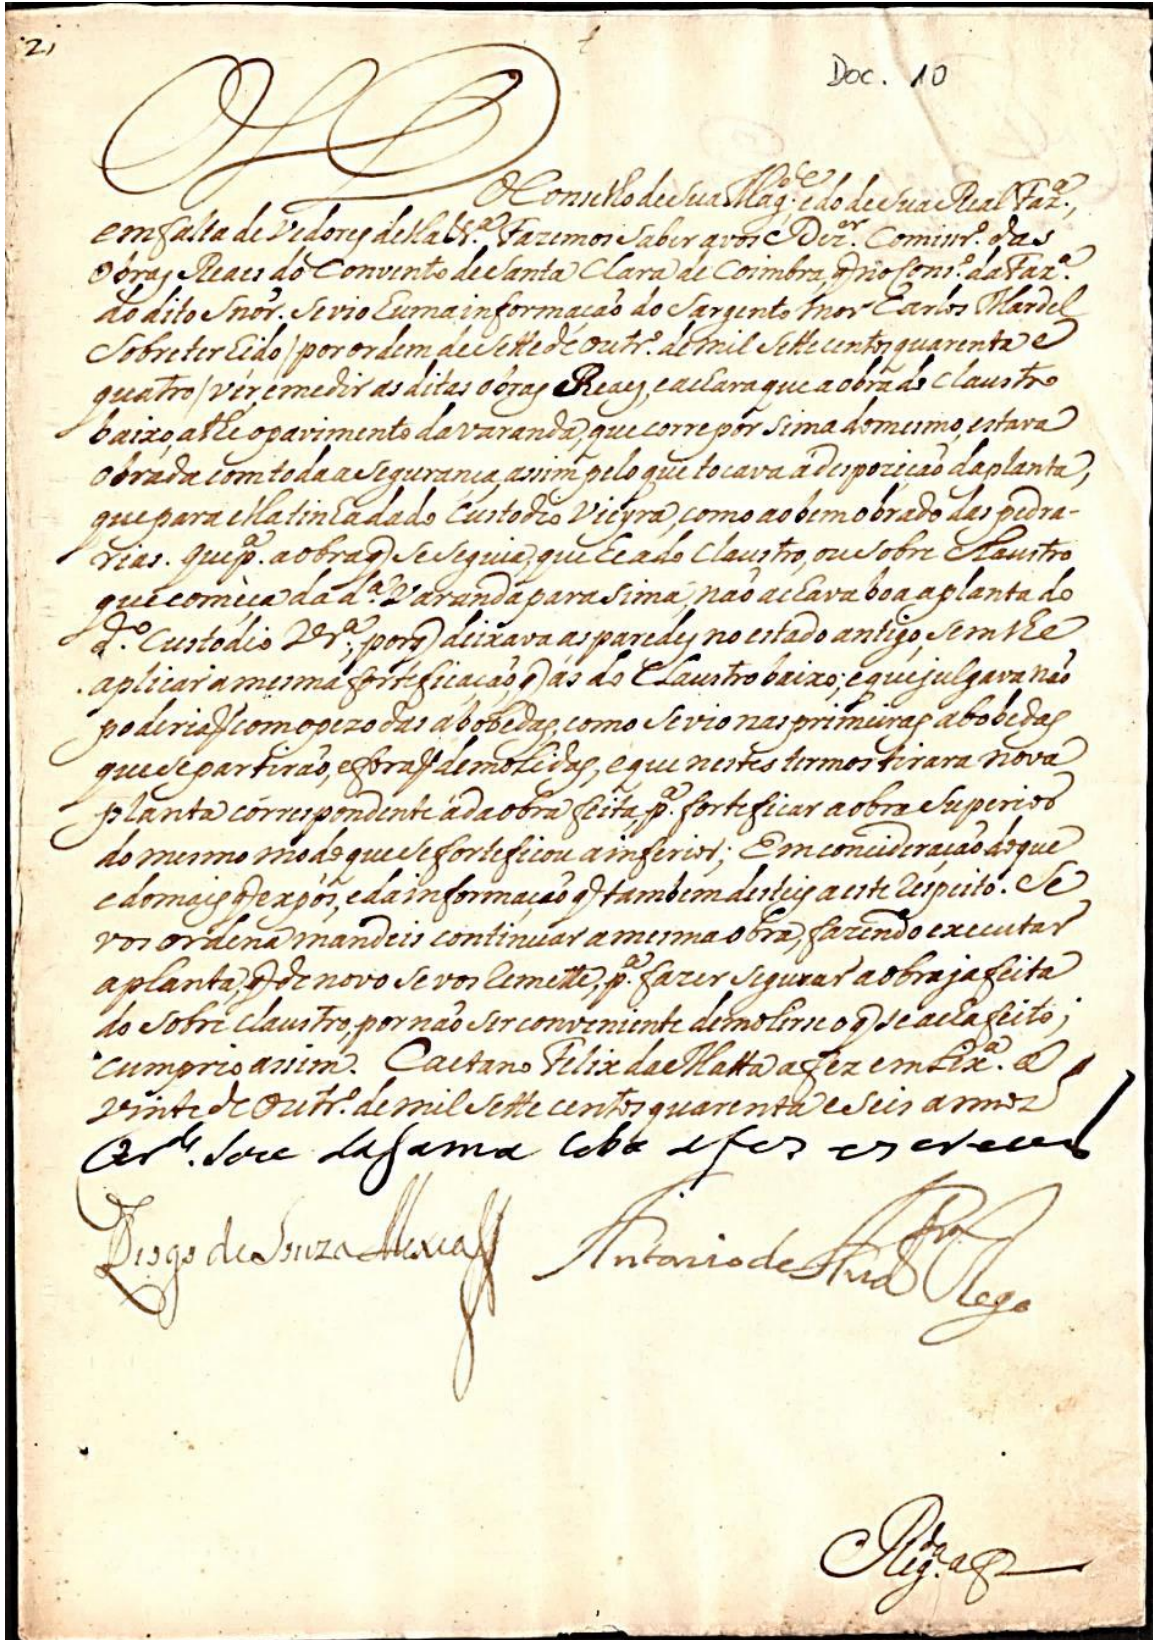 21
Doc. 10
O Conselho de Sua Mag.^e e do de Sua Real Faz.^a,
em falta de Vedores della &.^a Fazemos saber a vos Dez.^or Comissr.^o das
Obras Reaes do Convento de Santa Clara de Coimbra, q̃ no Cons.^o da Faz.^a
do dito Snõr. Se vio huma informação do Sargento mor Carlos Mardel
Sobre ter hido / por ordem de Sette de Outr.^o de mil Sette centos quarenta e
quatro / ver, e medir as ditas obras Reaes, e achara que a obra do Claustro
baixo athe o pavimento da varanda, que corre por sima do mesmo, estava
obrada com toda a Segurança, assim pelo que tocava á dispozição da planta,
que para ella tinha dado Custodio Vieyra, como ao bem obrado das pedra-
rias. Que p.^a a obra q̃ se Seguia, que he a do Claustro, ou sobre Claustro
que começa da d.^a Varanda para sima, não achava boa a planta do
d.^o Custódio Vr.^a, porq̃ deixava as paredes no estado antigo, sem lhe
aplicar a mesma fortificação, q̃ ás do Claustro baixo; e que julgava não
poderião com o pezo das abobedas, como se vio nas primeiras abobedas
que se partirão, e forão demolidas, e que nestes termos tirara nova
planta correspondente á da obra feita, p.^a fortificar a obra Superior
do mesmo modo que se fortificou a inferior; Em concideração do que
e do mais q̃ expôs, e da informação q̃ tambem destes a este respeito. Se
vos ordena mandeis continuar a mesma obra, fazendo executar
a planta, q̃ de novo se vos remette, p.^a fazer segurar a obra ja feita
do sobre claustro, por não ser conveniente demolirse o q̃ se acha feito;
Cumprio assim. Caetano Felix da Matta a fez em Lix.^a a
vinte de Outr.^o de mil Sette centos quarenta e Seis annos
Jose da Gama Lobo a fes escrever
Diogo de Souza Mexia Antonio de And.^e Rego
Reg.^da a f